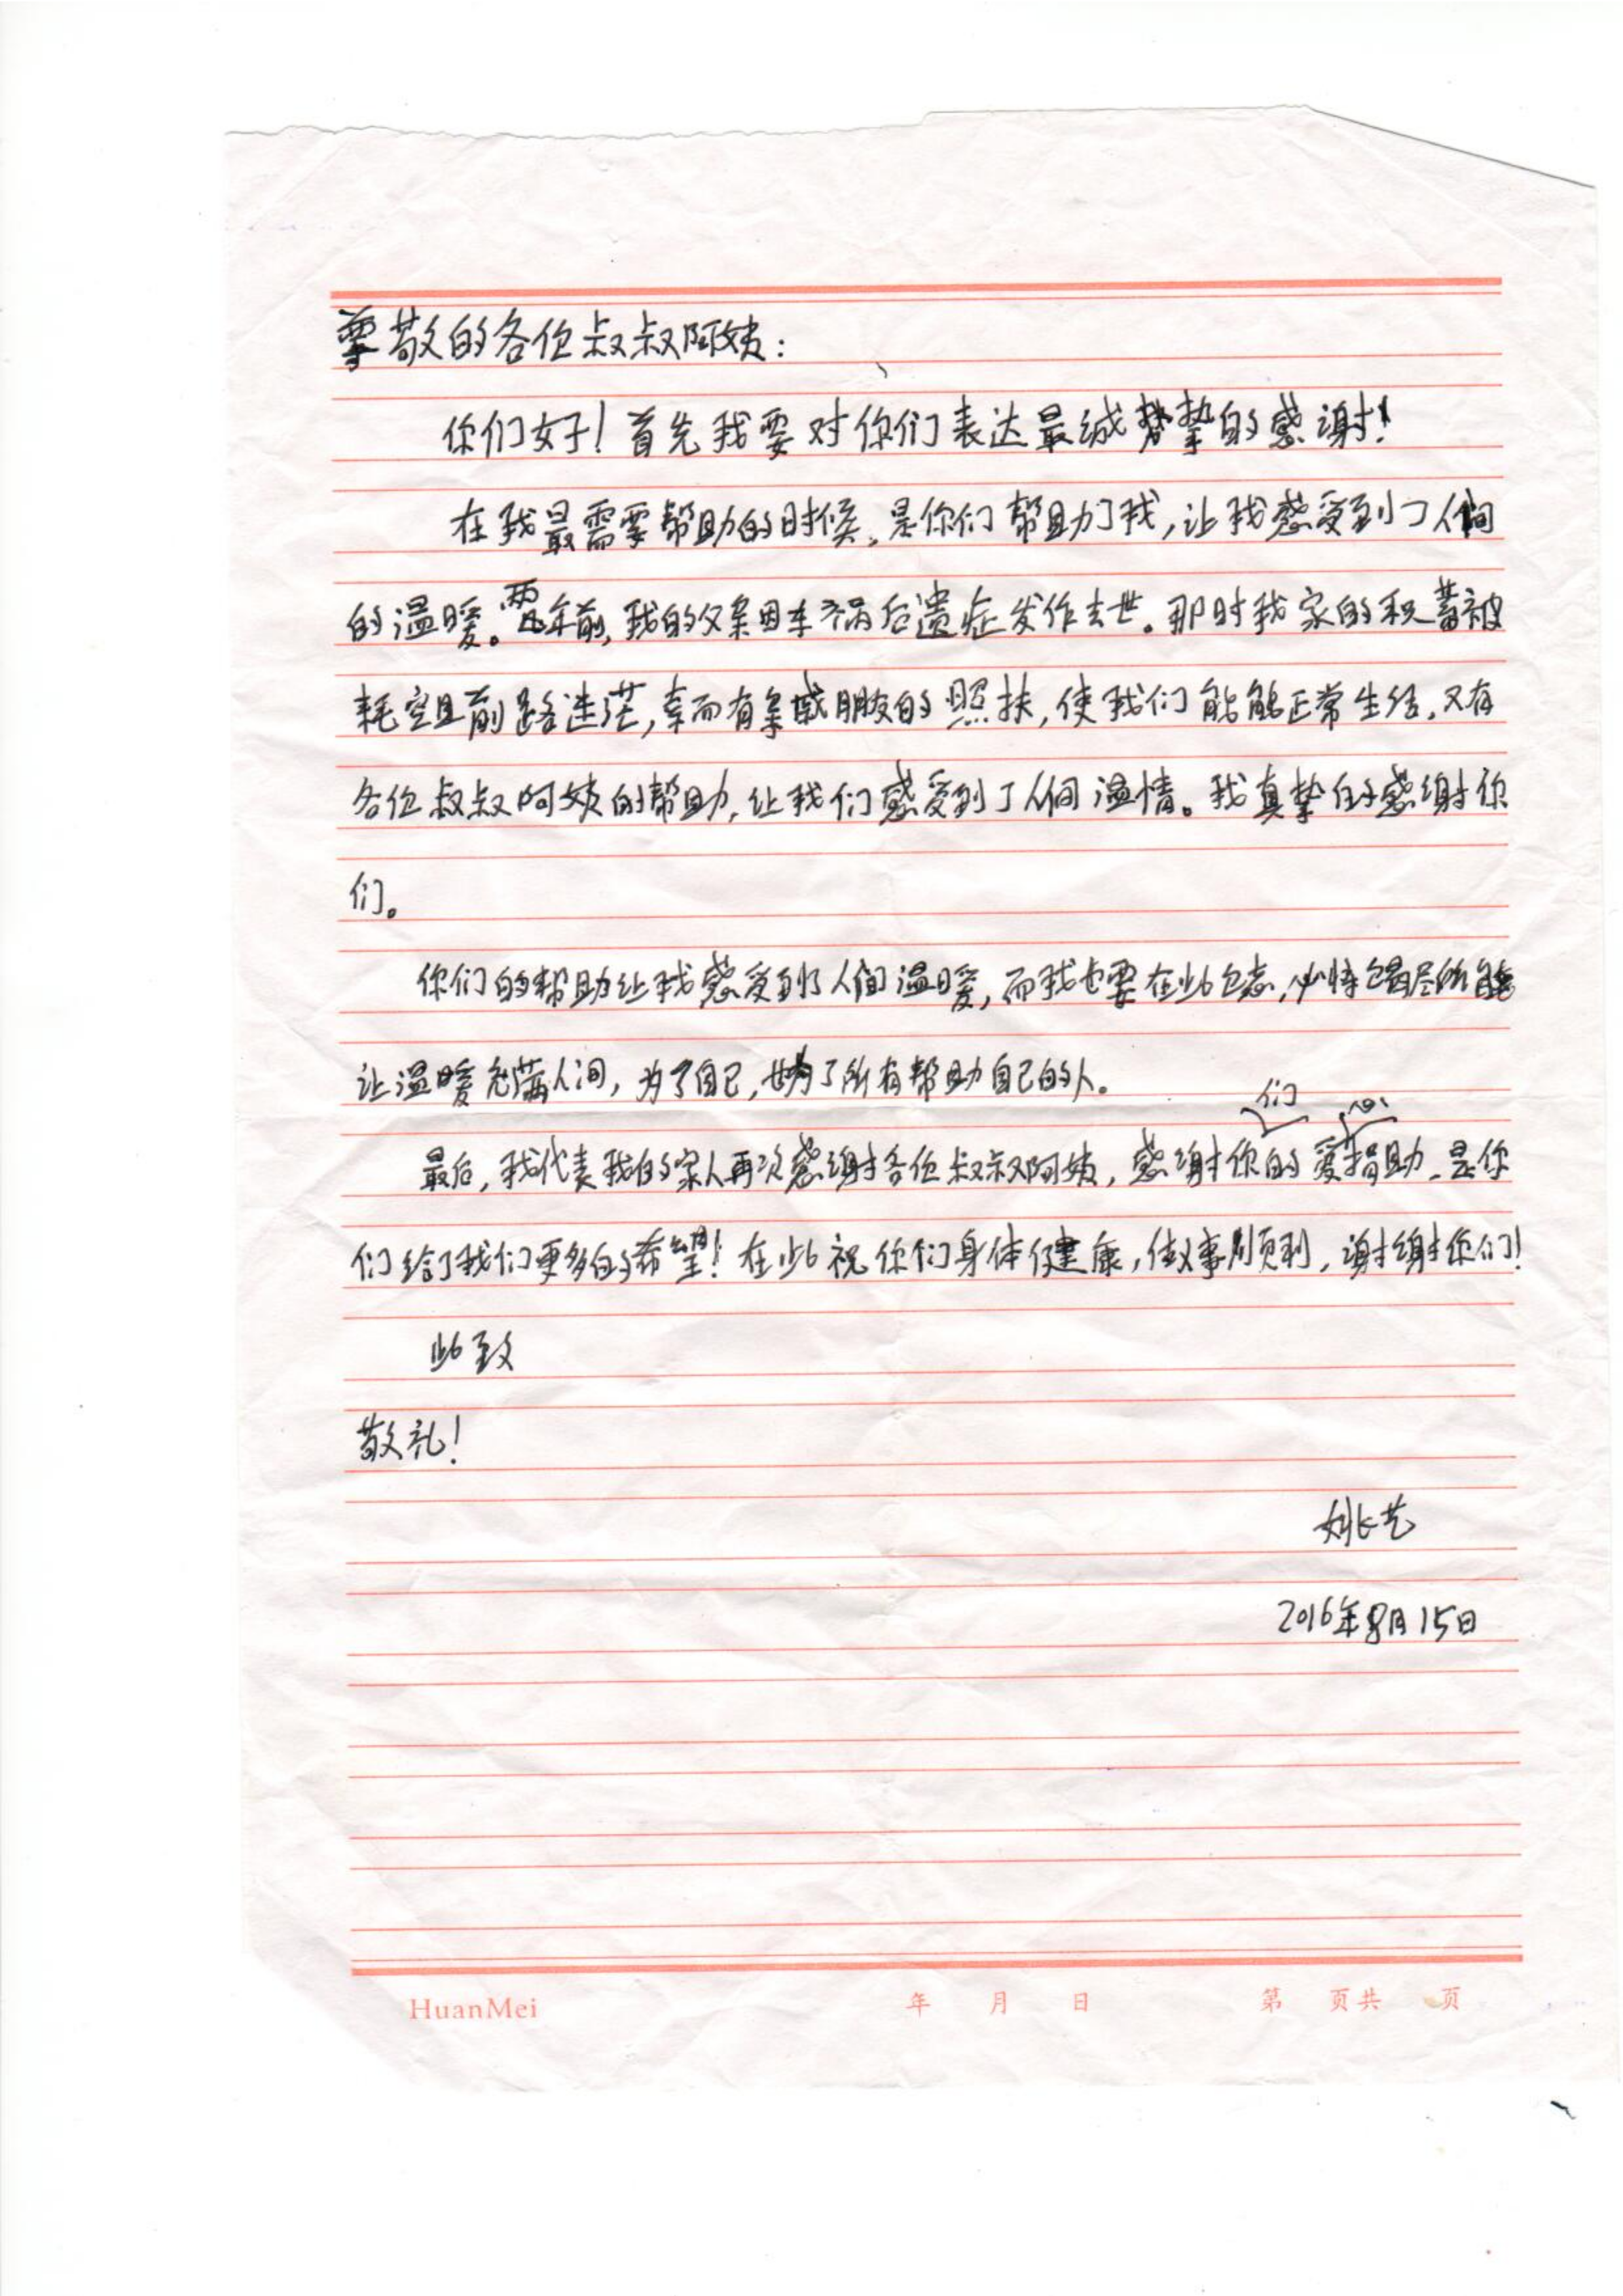 尊敬的各位叔叔阿姨：
你们好！首先我要对你们表达最诚挚的感谢！
在我最需要帮助的时候，是你们帮助了我，让我感受到了人间
的温暖。两年前，我的父亲因车祸后遗症发作去世。那时我家的积蓄被
耗空且前路迷茫，幸而有亲戚朋友的照扶，使我们能够正常生活，又有
各位叔叔阿姨的帮助，让我们感受到了人间温情。我真挚的感谢你
们。
你们的帮助让我感受到了人间温暖，而我也要在此立志，必将竭尽所能
让温暖充满人间，为了自己，也为了所有帮助自己的人。
最后，我代表我的家人再次感谢各位叔叔阿姨，感谢你们的爱心捐助，是你
们给了我们更多的希望！在此祝你们身体健康，做事顺利，谢谢你们！
此致
敬礼！
姚长艺
2016年8月15日
HuanMei 年 月 日 第 页共 页